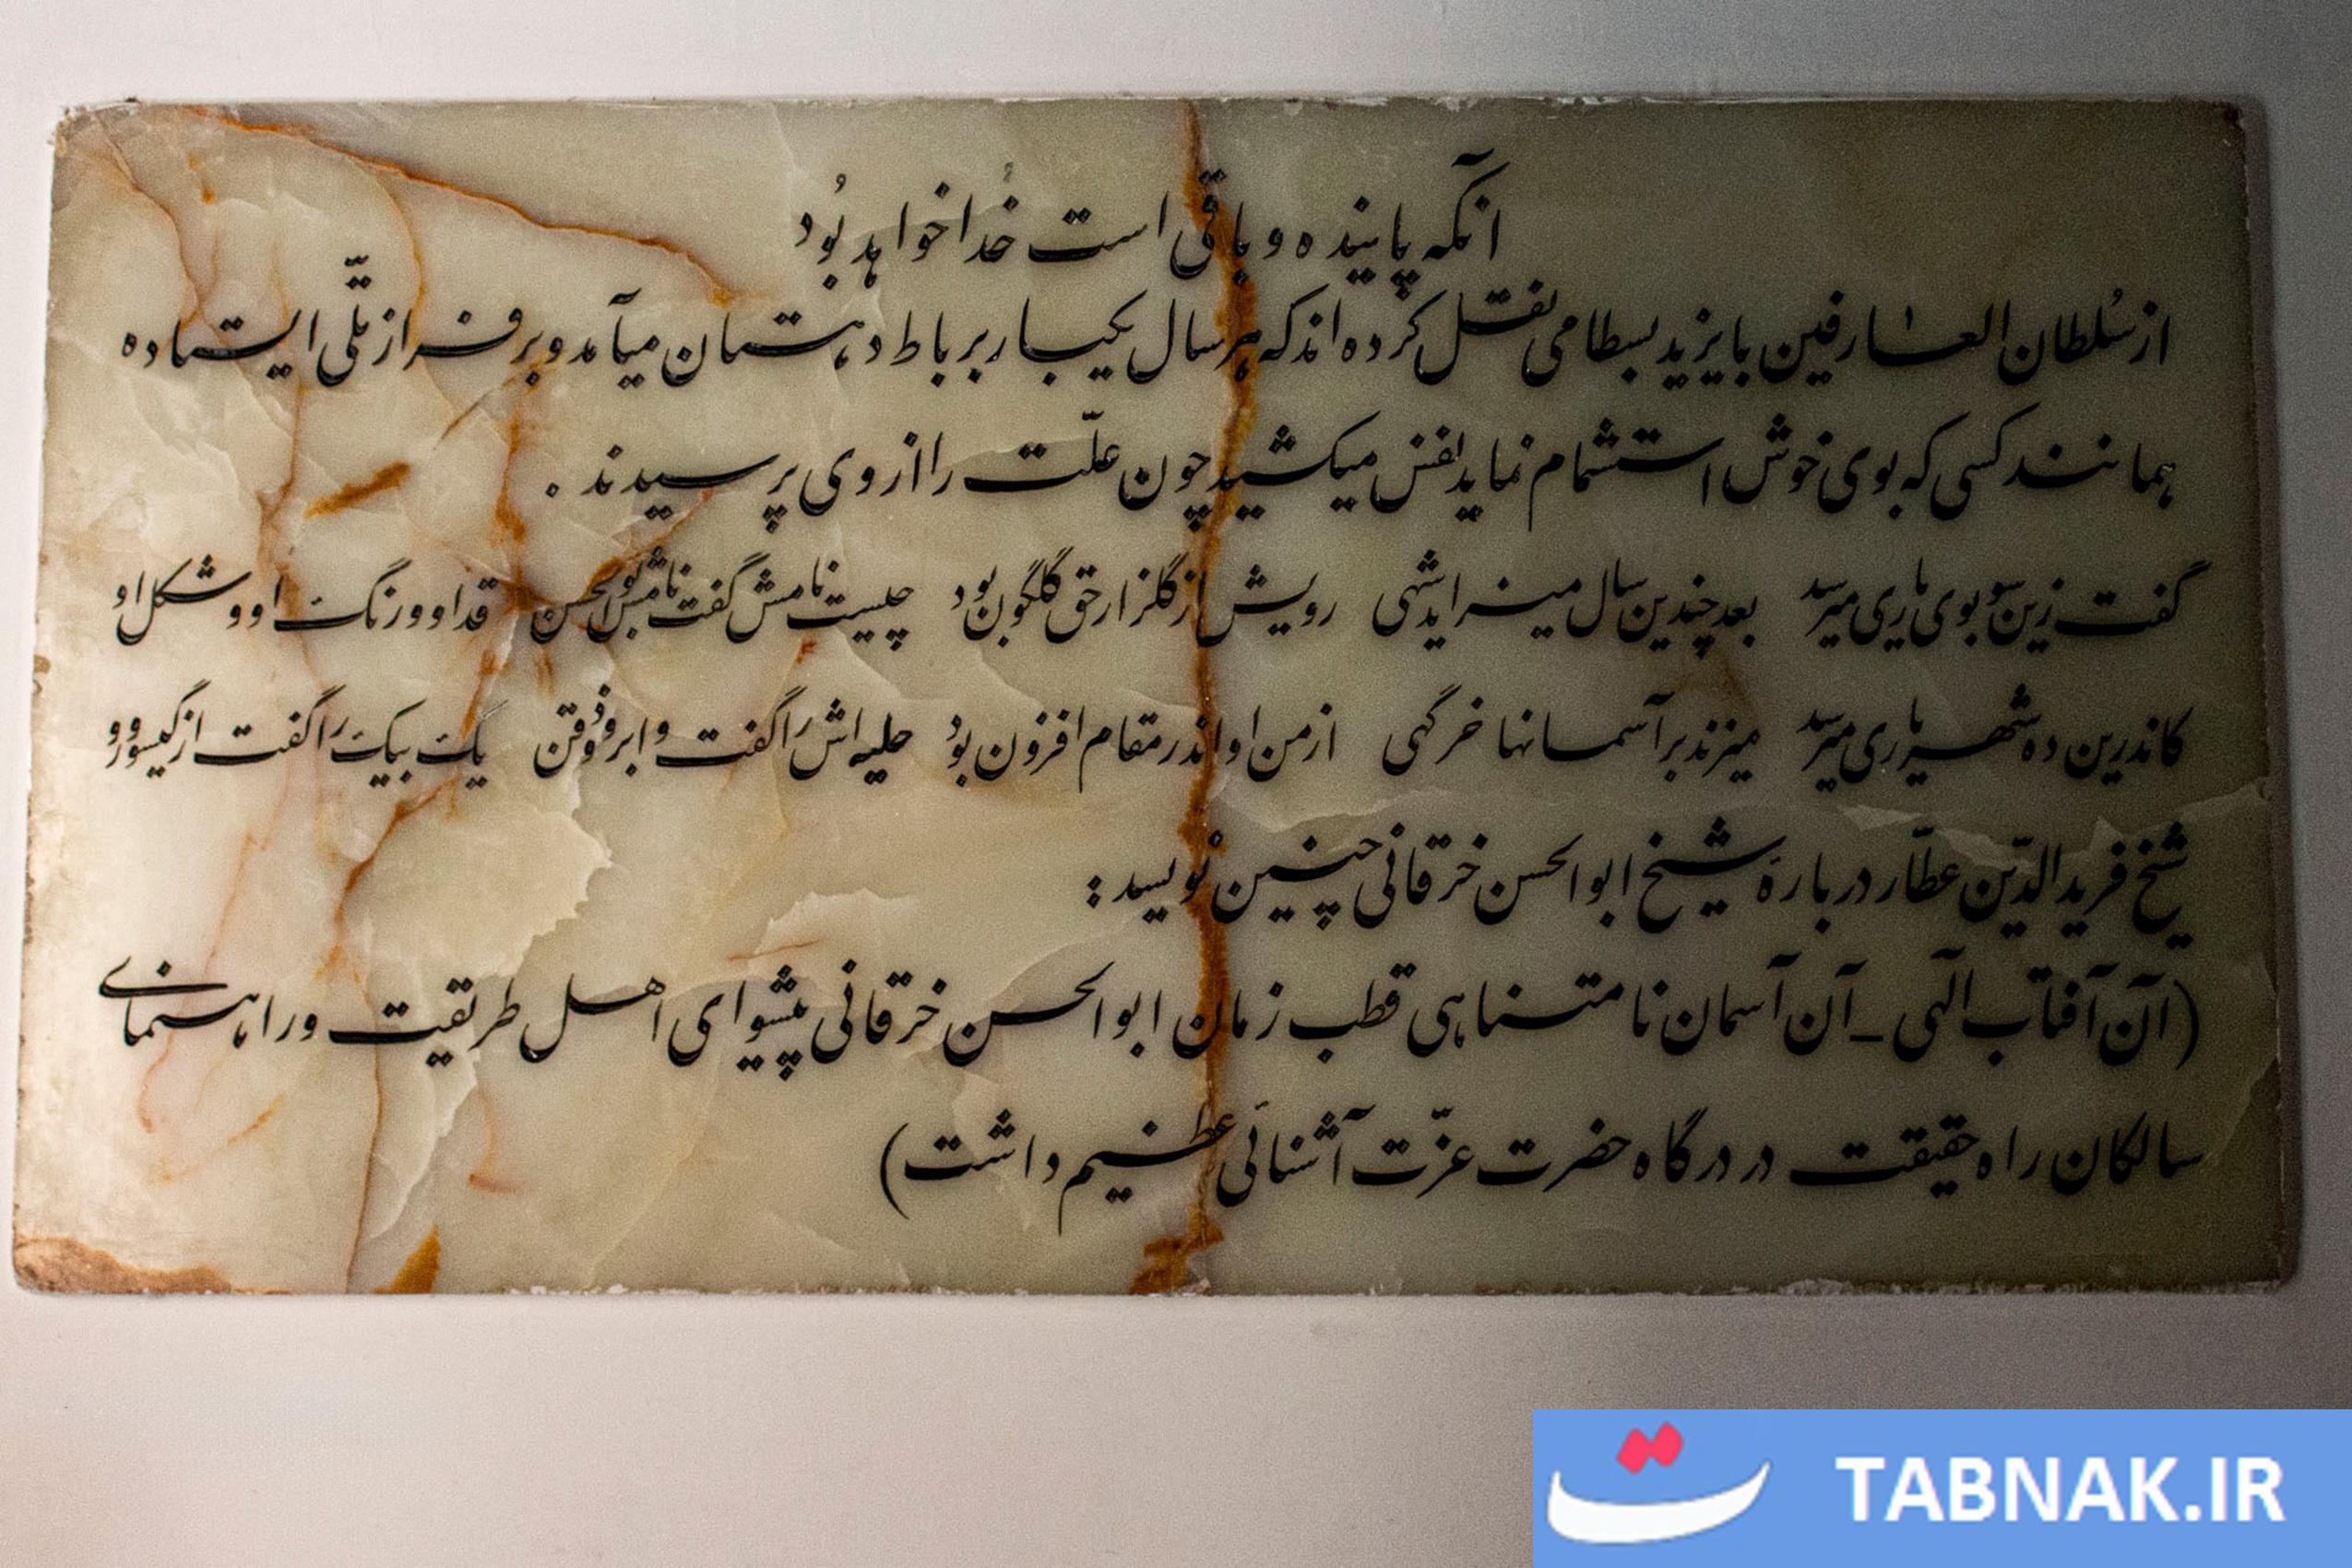 آنکه پاینده و باقی است خُدا خواهد بُود
از سُلطان العارفین بایزید بسطامی نقل کرده‌اند که هر سال یکبار بر باط دهستان میآمد و بر فراز تلّی ایستاده
همانند کسی که بوی خوش استشمام نماید نفس میکشید چون علّت را از وی پرسیدند .
گفت زین سو بوی یاری میرسد بعد چندین سال میزاید شهی رویش از گلزار حق گلگون بود چیست نامش گفت نامش بوالحسن قد او و رنگ او و شکل او
کاندرین ده شهریاری میرسد میزند بر آسمانها خرگهی از من او اندر مقام افزون بود حلیه‌اش را گفت و ابرو و ذقن یک بیک را گفت از گیسو و رو
شیخ فریدالدّین عطّار دربارهٔ شیخ ابوالحسن خرقانی چنین نویسد :
(آن آفتاب الٓهی ـ آن آسمان نامتناهی قطب زمان ابوالحسن خرقانی پیشوای اهل طریقت و راهنمای
سالکان راه حقیقت در درگاه حضرت عزّت آشنائی عظیم داشت)
TABNAK.IR